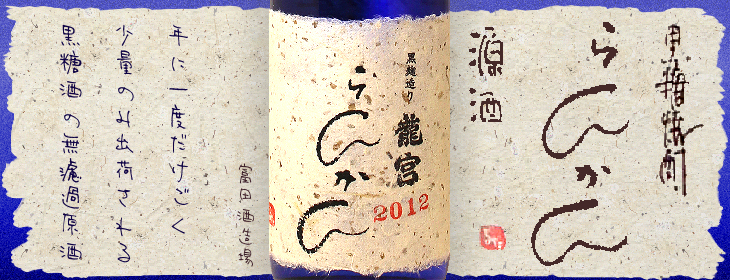 年に一度だけごく
少量のみ出荷される
黒糖酒の無濾過原酒
富田酒造場
黒麹造り
龍宮
らんかん
2012
黒糖焼酎
らんかん
源酒